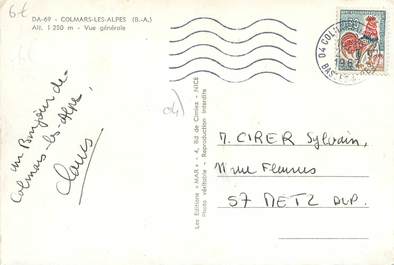 6€
DA-69 - COLMARS-LES-ALPES (B.-A.)
Alt. 1 250 m - Vue générale
04 COLMARS
196
BASSES-ALPES
un Bonjour de
Colmars-les-Alpes,
Les Editions "MAR" - 4, Bd de Cimiez - NICE
Photo véritable - Reproduction interdite
M. CIRER Sylvain,
rue Fleurus
57 METZ